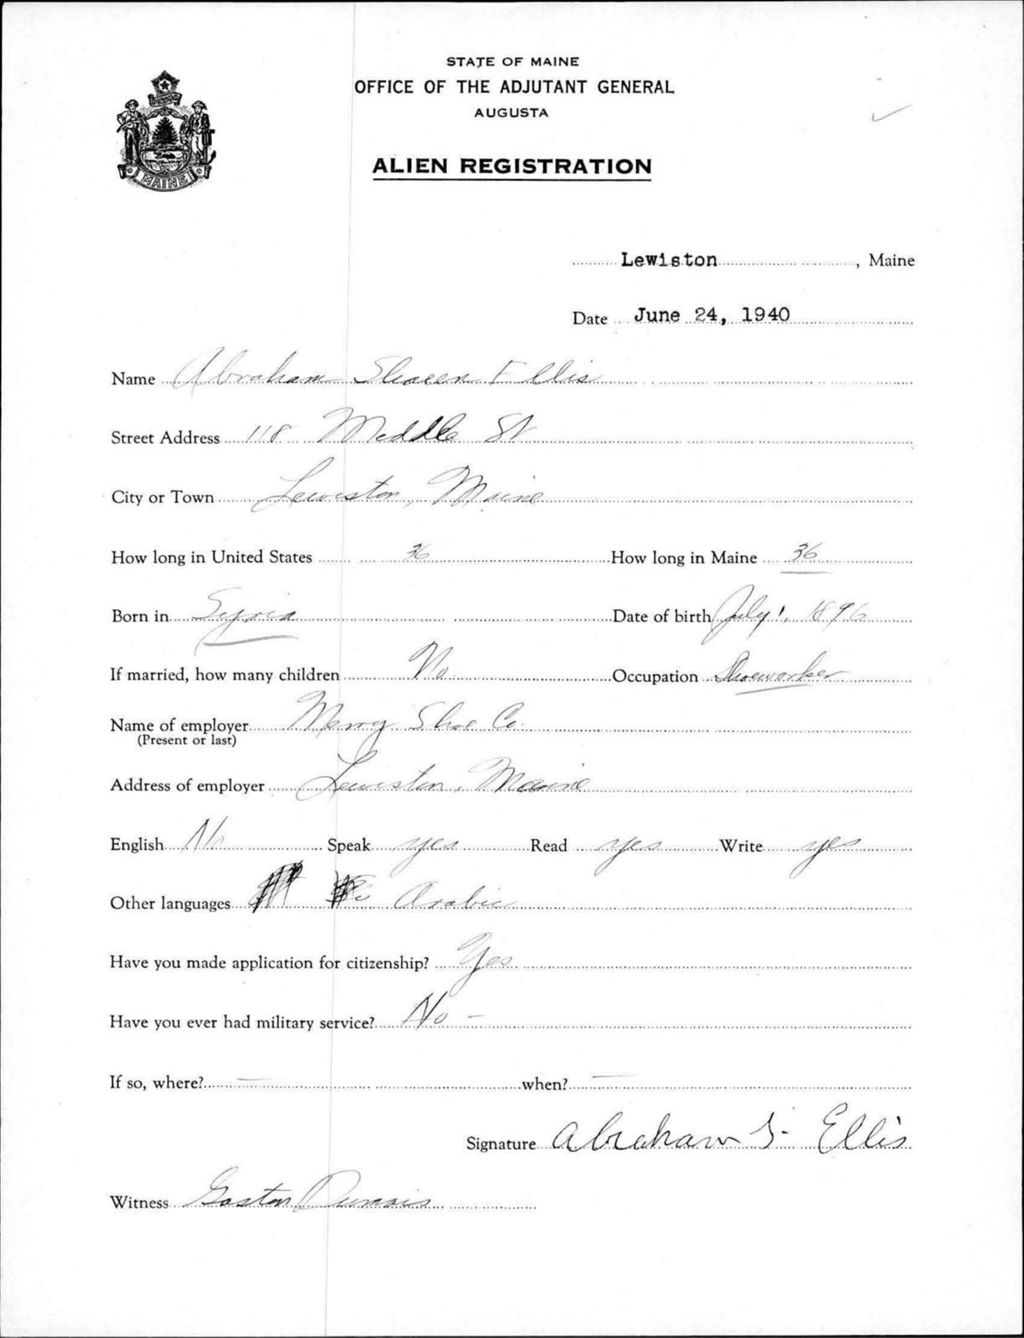 STATE OF MAINE
OFFICE OF THE ADJUTANT GENERAL
AUGUSTA
MAINE
ALIEN REGISTRATION
Lewiston, Maine
Date June 24, 1940
Name Abraham Shaeen Ellis
Street Address 118 Middle St
City or Town Lewiston, Maine
How long in United States 36 How long in Maine 36
Born in Syria Date of birth July 1, 1896
If married, how many children No Occupation Shoeworker
Name of employer Shoe Co.
(Present or last)
Address of employer Lewiston, Maine
English No Speak yes Read yes Write yes
Other languages Arabic
Have you made application for citizenship? Yes
Have you ever had military service? No -
If so, where? — when? —
Signature Abraham S- Ellis
Witness Gaston Dumais